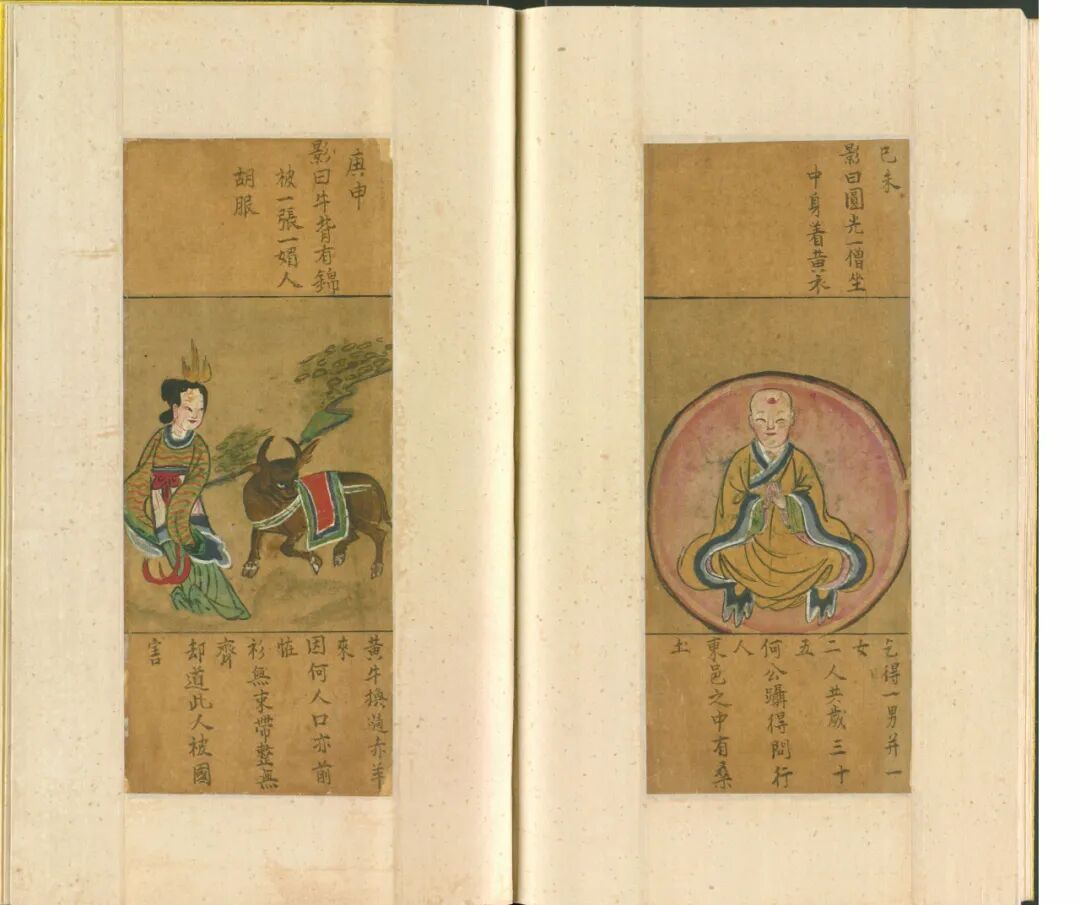 己未
影曰圓光一僧坐
中身着黃衣
乞得一男并一
女
二人共歲三十
五
何公躡得問行
人
東邑之中有桑
土
庚申
影曰牛背有錦
被一張一媚人
胡服
黃牛換赤羊
來
因何人口亦前
恠
衫無束帶整無
齊
却道此人被國
害